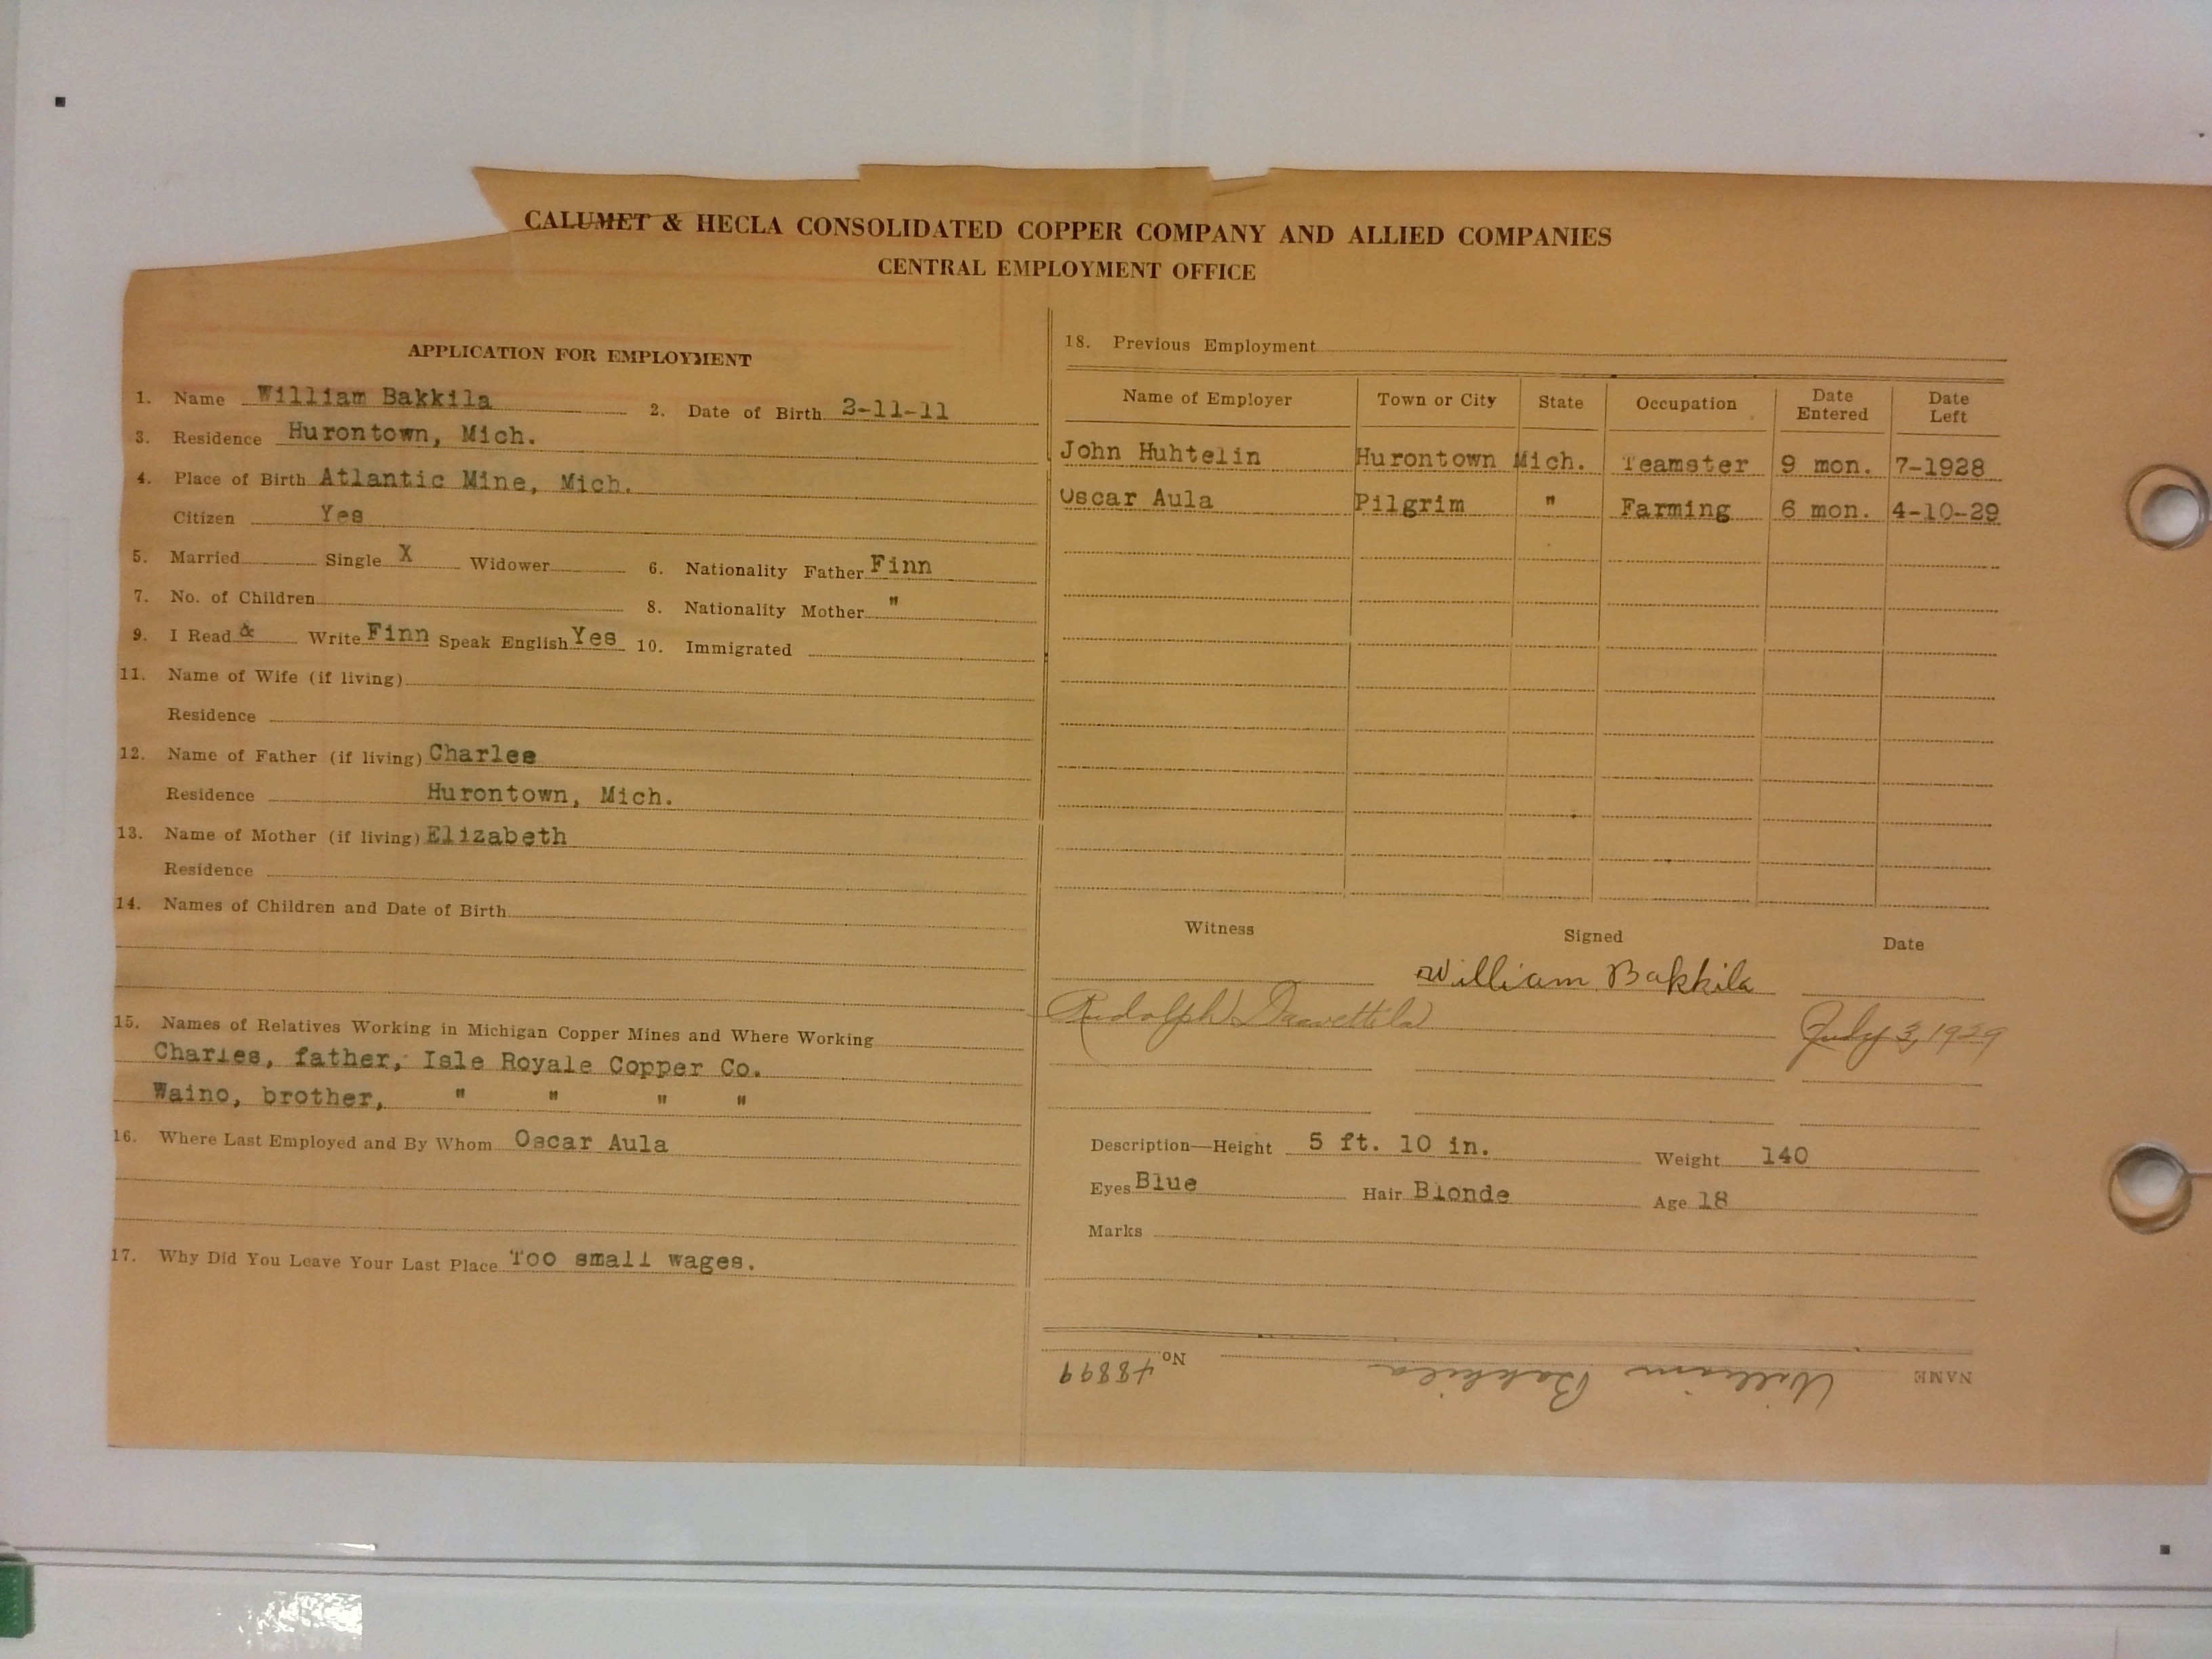 CALUMET & HECLA CONSOLIDATED COPPER COMPANY AND ALLIED COMPANIES
CENTRAL EMPLOYMENT OFFICE
APPLICATION FOR EMPLOYMENT
1. Name William Bakkila 2. Date of Birth 2-11-11
3. Residence Hurontown, Mich.
4. Place of Birth Atlantic Mine, Mich.
Citizen Yes
5. Married Single X Widower 6. Nationality Father Finn
7. No. of Children 8. Nationality Mother "
9. I Read & Write Finn Speak English Yes 10. Immigrated
11. Name of Wife (if living)
Residence
12. Name of Father (if living) Charles
Residence Hurontown, Mich.
13. Name of Mother (if living) Elizabeth
Residence
14. Names of Children and Date of Birth
15. Names of Relatives Working in Michigan Copper Mines and Where Working
Charles, father, Isle Royale Copper Co.
Waino, brother, " " " "
16. Where Last Employed and By Whom Oscar Aula
17. Why Did You Leave Your Last Place Too small wages.
18. Previous Employment
Name of Employer Town or City State Occupation Date Entered Date Left
John Huhtelin Hurontown Mich. Teamster 9 mon. 7-1928
Oscar Aula Pilgrim " Farming 6 mon. 4-10-29
Witness Signed Date
William Bakkila
Rudolph July 3, 1929
Description—Height 5 ft. 10 in. Weight 140
Eyes Blue Hair Blonde Age 18
Marks
NAME William Bakkila No. 48899